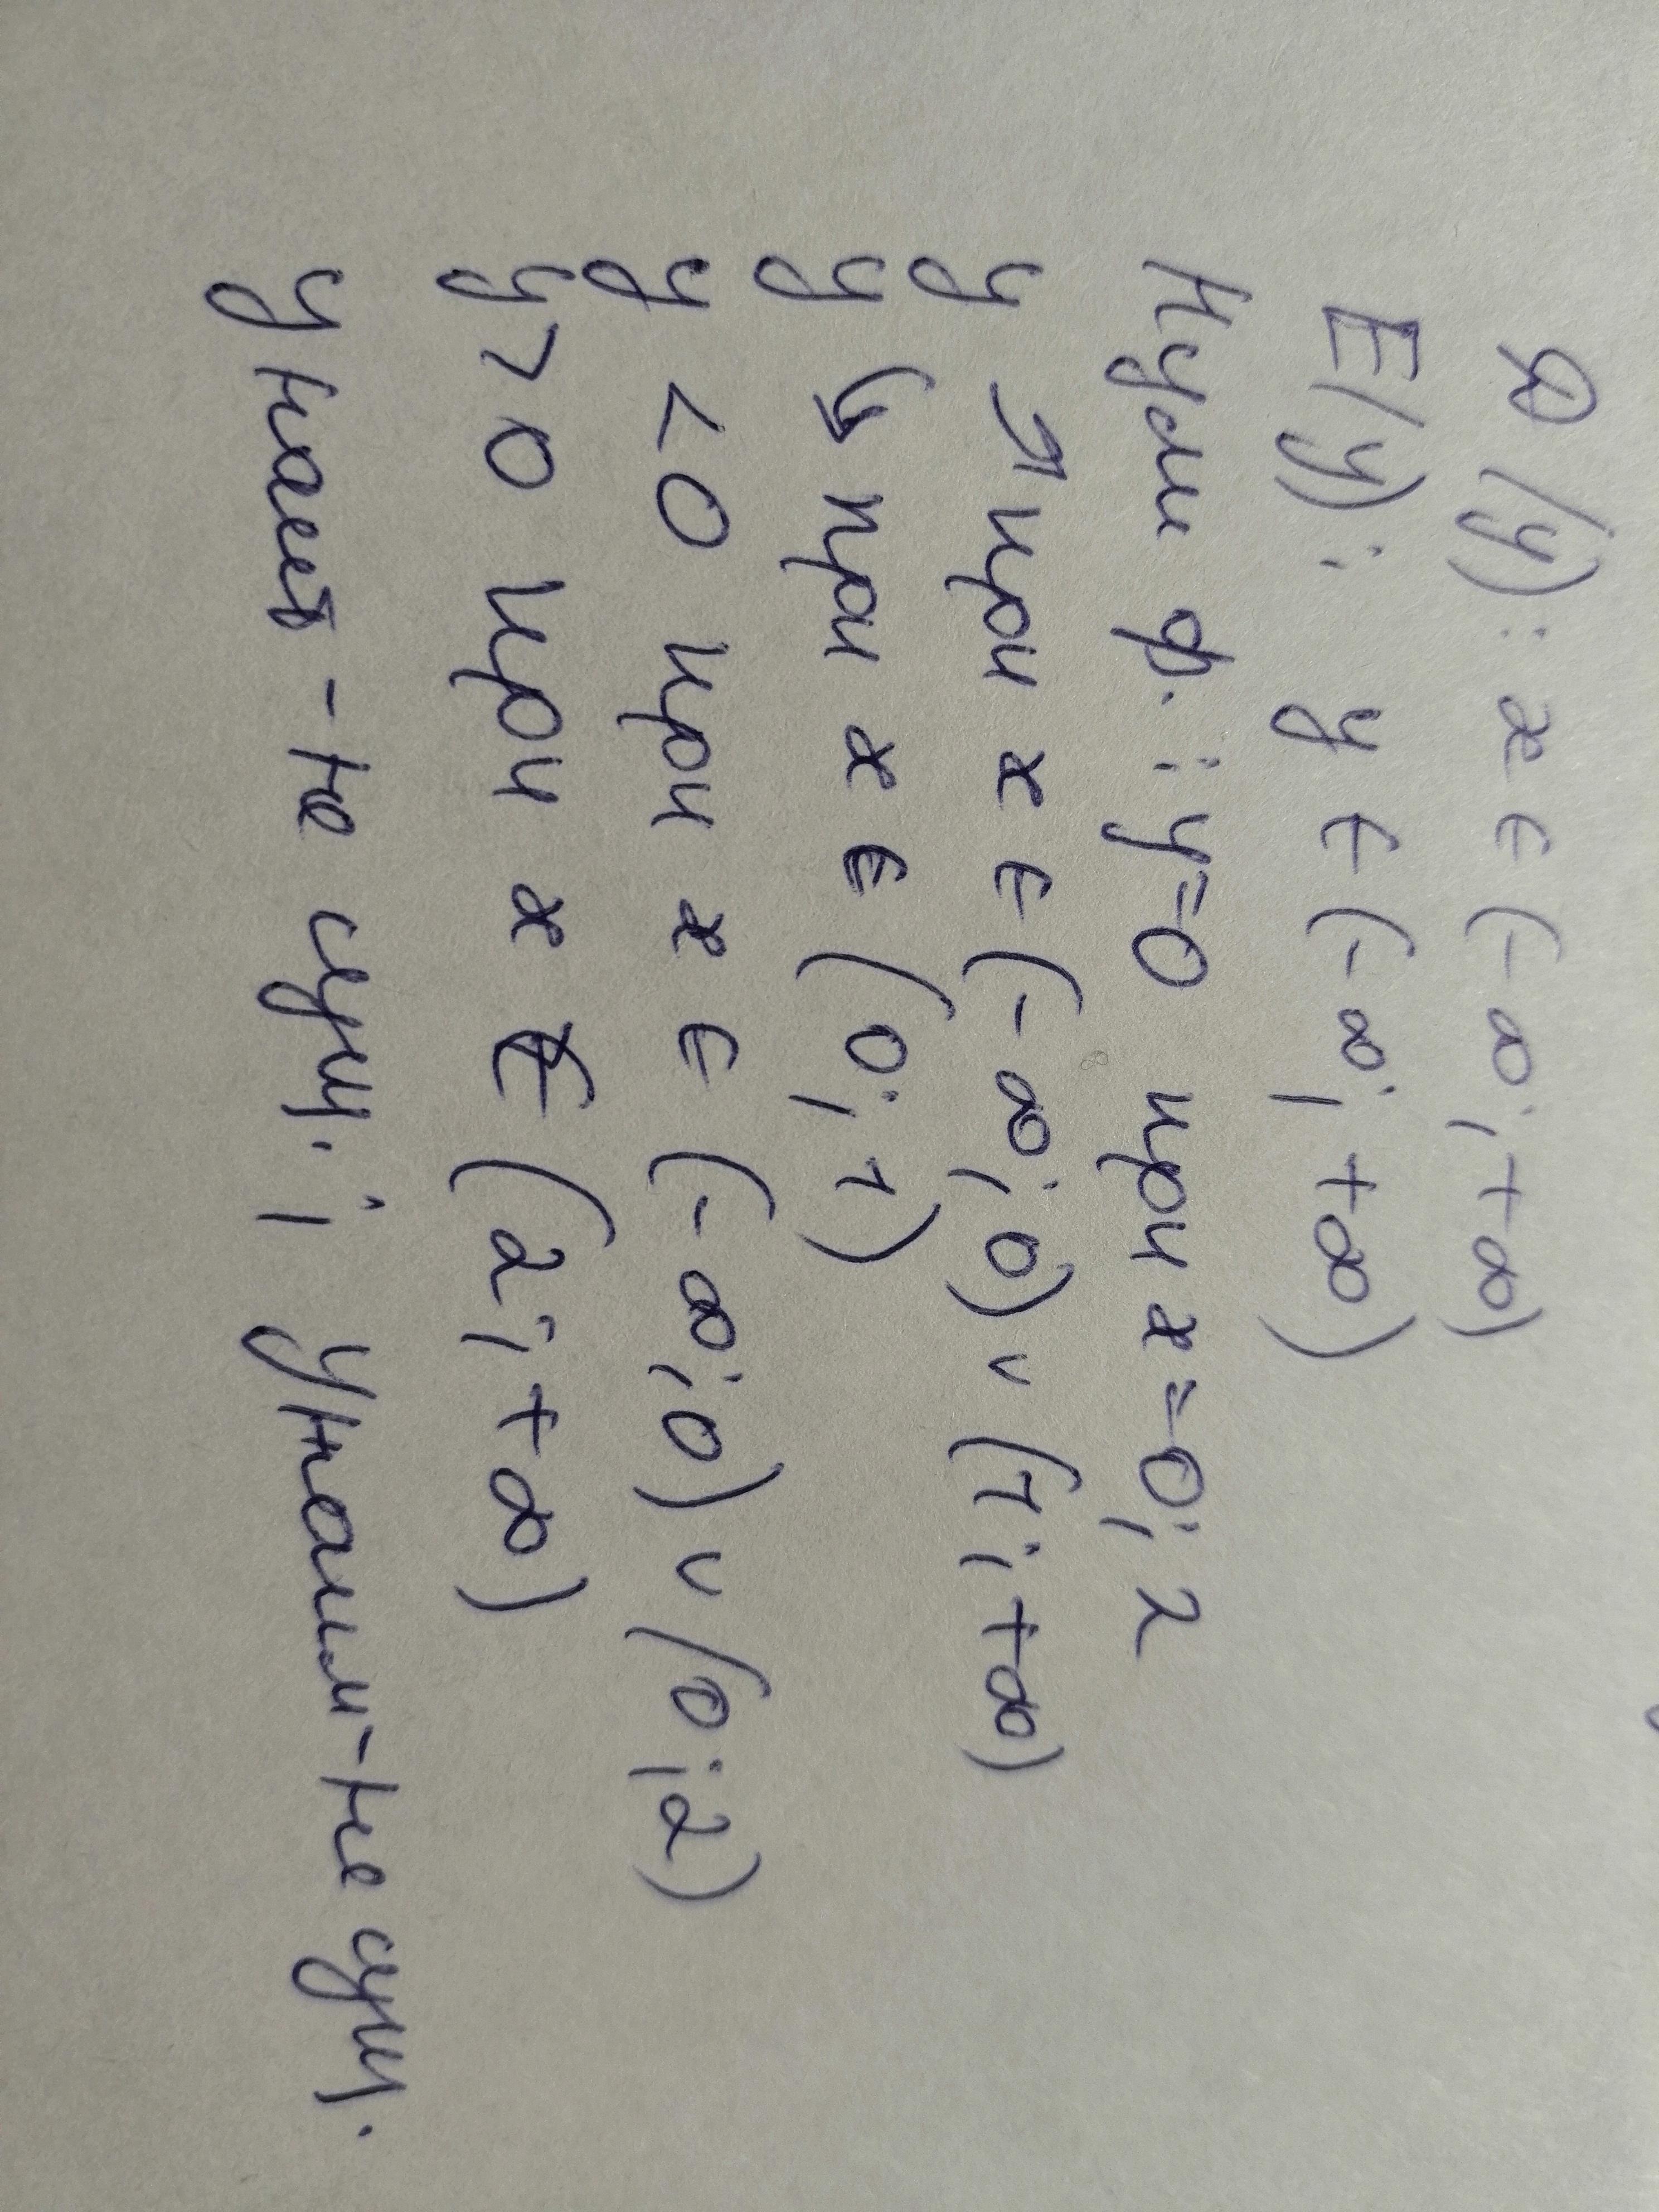 D(y): x ∈ (-∞; +∞)
E(y): y ∈ (-∞; +∞)
Нули ф.: y=0 при x=0; 2
y ↗ при x ∈ (-∞; 0) ∪ (1; +∞)
y ↘ при x ∈ (0; 1)
y < 0 при x ∈ (-∞; 0) ∪ (0; 2)
y > 0 при x ∈ (2; +∞)
yнаиб - не сущ.; yнаим - не сущ.